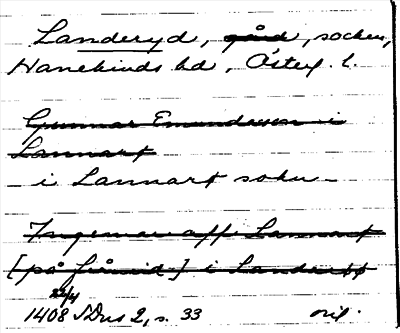 Landeryd, gård, socken,
Hanekinds hd, Österg. l.
Gunnar Emundasson i
Lannart
– i Lannart sokn –
Ingemar aff Lannart
[på fämid] i Landertt
22/4
1408 SDns 2, s. 33 or.